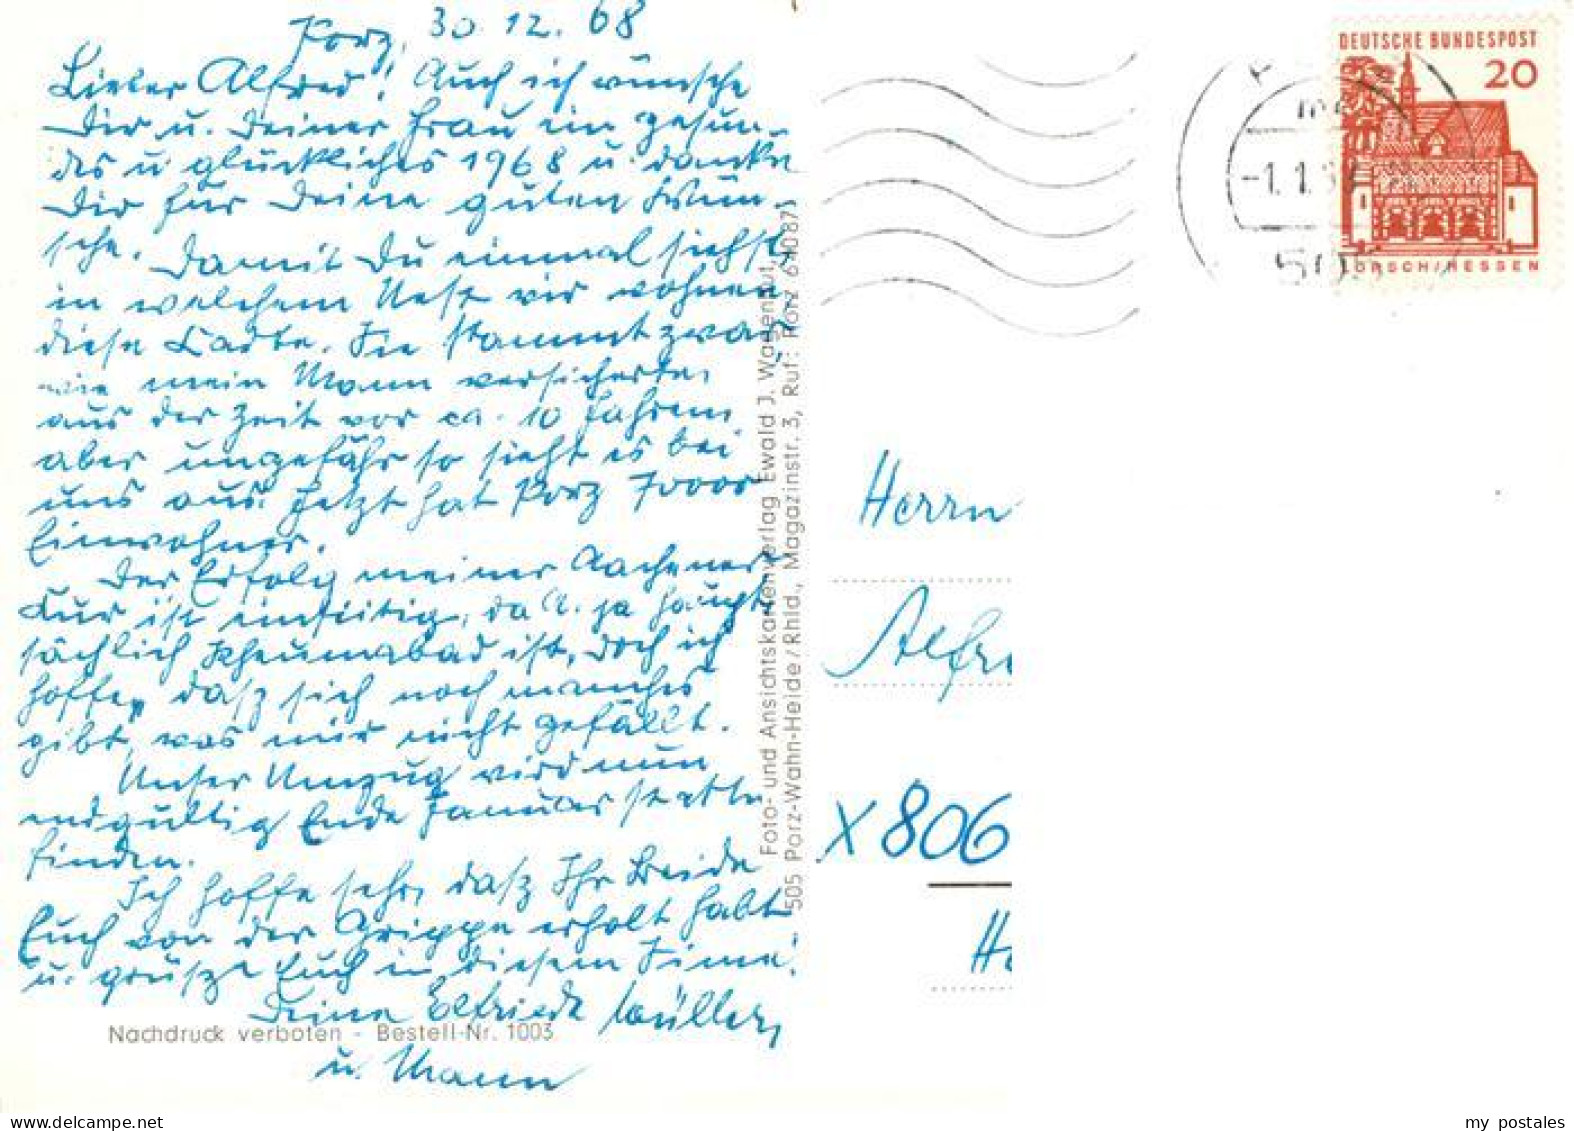 Porz, 30.12.68
Lieber Alfred! Auch ich wünsche
Dir u. Deiner Frau ein gesun-
des u glückliches 1968 u. danke
Dir für Deine guten Wün-
sche. Damit Du einmal siehst,
in welchem Nest wir wohnen
diese Karte. Sie stammt zwar,
wie mein Mann versicherte,
aus der Zeit vor ca. 10 Jahren,
aber ungefähr so sieht es bei
uns aus. Jetzt hat Porz 70000
Einwohner.
Der Erfolg meiner Aachener
Kur ist einseitig, da A. ja haupt
sächlich Rheumabad ist, doch ich
hoffe, daß sich noch manches
gibt, was mir nicht gefällt.
Unser Umzug wird nun
endgültig Ende Januar statt
finden.
Ich hoffe sehr, daß Ihr Beide
Euch von der Grippe erholt habt
u. grüße Euch in diesem Sinne!
Deine Elfriede Müller,
u. Mann
Nachdruck verboten - Bestell-Nr. 1003
Foto- und Ansichtskartenverlag Ewald J.
505 Porz-Wahn-Heide/Rhld., Magazinstr. 3, Ruf: Porz 64087
DEUTSCHE BUNDESPOST
20
LORSCH/HESSEN
-1.1.6
505
Herrn
Alfre
X 806
my postales